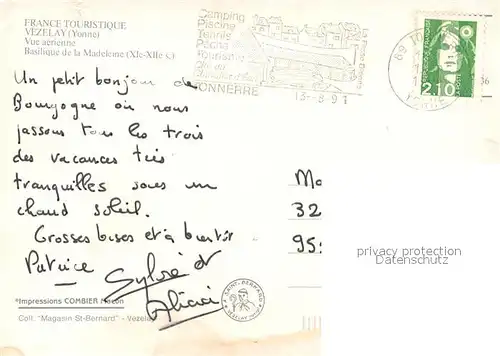 FRANCE TOURISTIQUE
VEZELAY (Yonne)
Vue aérienne
Basilique de la Madeleine (XIe-XIIe S.)
Camping
Piscine
Tennis
Pêche
Tourisme
TONNERRE
13-8-91
2,10
Un petit bonjour de
Bourgogne où nous
passons tous les trois
des vacances très
tranquilles sous un
chaud soleil.
Grosses bises et à bientôt
Patrice Sylvie et
Ma
32
95
privacy protection
Datenschutz
*Impressions COMBIER Mâcon
Coll. "Magasin St-Bernard" - Vezelay
SAINT-BERNARD